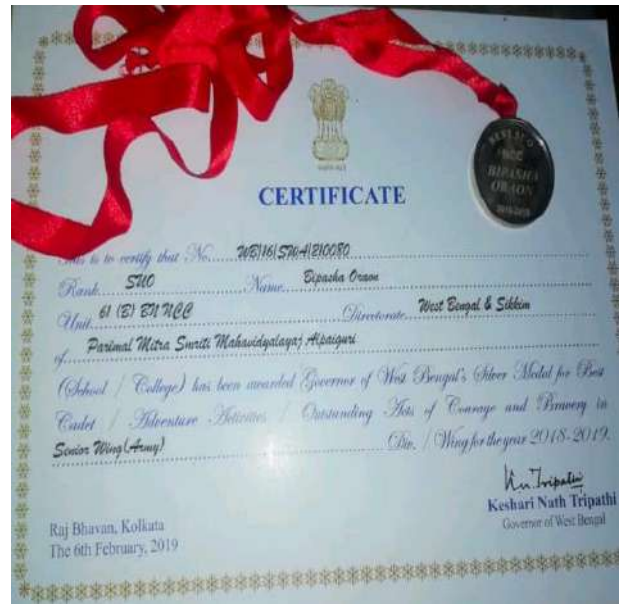 BEST SUO
NCC
BIPASHA
ORAON
CERTIFICATE
is to certify that No. WB/16/SWA/210080
Rank SUO Name Bipasha Oraon
Unit 61 (B) BN NCC Directorate West Bengal & Sikkim
of Parimal Mitra Smriti Mahavidyalayaj Alpaiguri
(School / College) has been awarded Governor of West Bengal's Silver Medal for Best
Cadet / Adventure Activities / Outstanding Acts of Courage and Bravery in
Senior Wing (Army) Div. / Wing for the year 2018-2019.
Keshari Nath Tripathi
Governor of West Bengal
Raj Bhavan, Kolkata
The 6th February, 2019